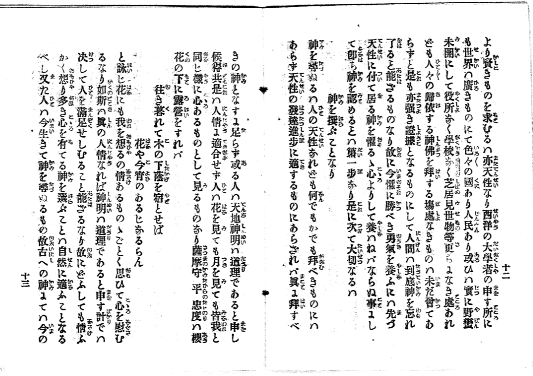 より貴きものを求むるハ亦天性なり西洋の大學者の申す所に
も世界の廣きものにて色々の國あり人民あり或ひハ實に野蠻
未開にして政府もなく學校もなく芝居見世物等更になき處あれ
ども人々の歸依する神佛を拜する塲處なきものハ未だ曾てあ
らずと是も亦著き證據となるものにして人間ハ到底神を忘れ
了ると能ざるものなり故に今懼に勝べき勇氣を養ふにハ先づ
天性に付て居る神を懼る心よりして養ハねバならぬ事まし
て卽ち神を認めると第一歩なり是に次て大切なるハ
神を撰ぶことなり
神を尊ぬるハ人の天性なれども何でもかでも拜べきものにハ
あらず天性の發達進歩に適するものにあらざれバ眞よ拜すべ
十二
きの神となすよ足らず或る人ハ天地神明ハ道理であると申し
候得共是ハ人情よ適合せず人ハ花を見ても月を見ても皆我と
同じ樣に心あるものとして見るものなり薩摩守 平忠度ハ櫻
花の下に露營をすれバ
往き暮れて木の下蔭を宿とせば
花や今宵のあるじならん
と詠じ花にも我を想るの情あるものゝごとく思ひて心を慰む
るなり如斯ハ眞の人情なれば神明ハ道理であると申す計でハ
決して人を滿足せしむること能ざるなり故に どふしても情ふ
かく想り多き心を有てる神を撰ぶことハ自然に適ふことなる
べし又た人ハ今生きて神を尊ぬるもの故古への神よてハ今の
十三